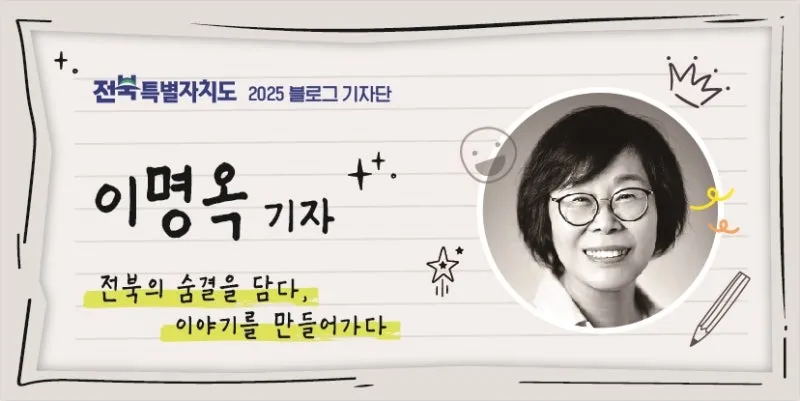 전북특별자치도 2025 블로그 기자단
이명옥 기자
전북의 숨결을 담다,
이야기를 만들어가다